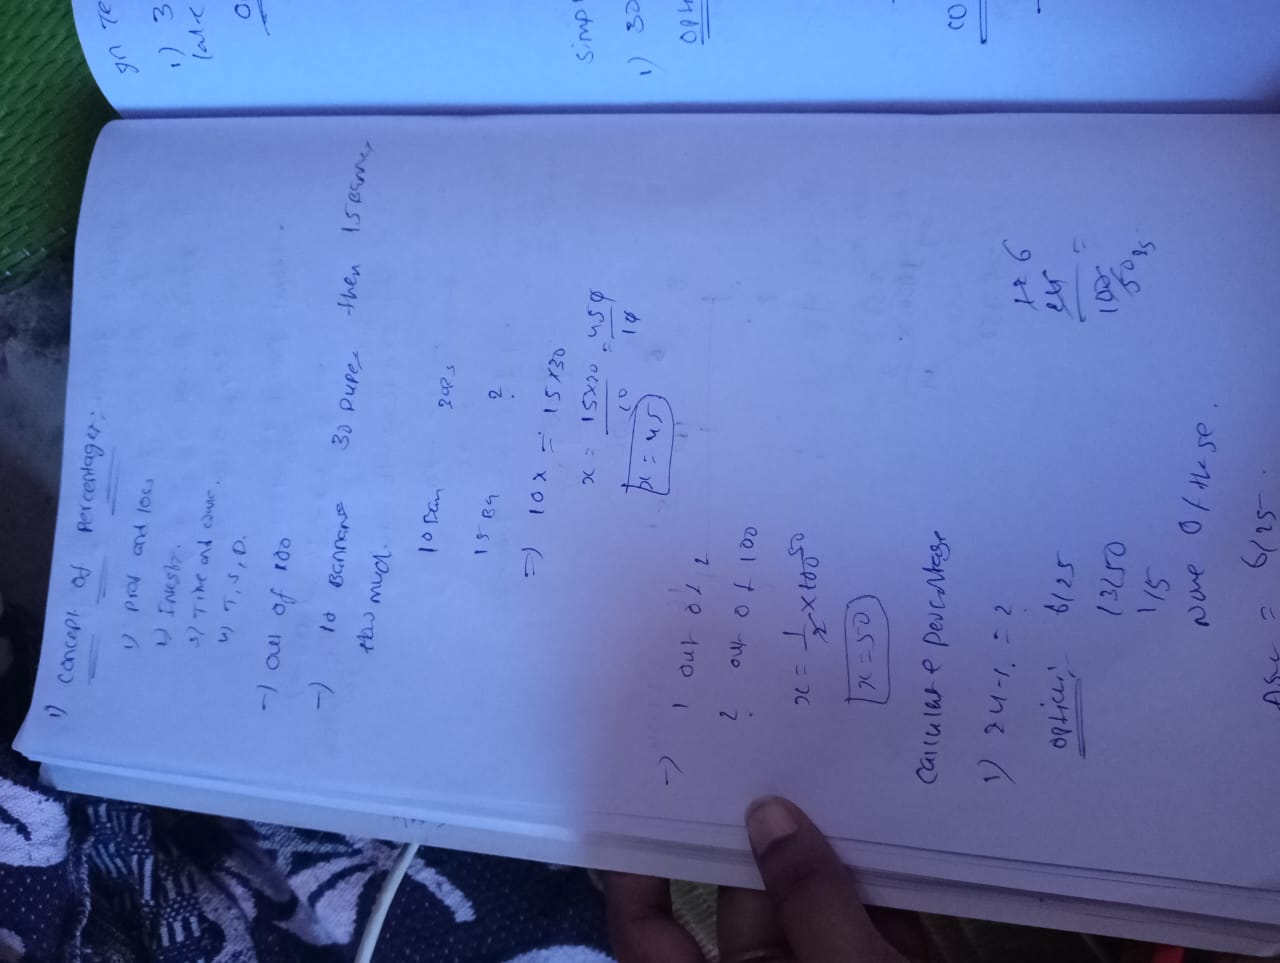 1) Concept of Percentages:
1) Prof and loss
3) Time and
4) T, S, D.
-) out of 100
-) 10 Bannans 30 rupes then 15 Bannas
How much.
10 Ban 30Rs
15 Ba ?
=) 10x = 15x30
x = 15x30 / 10 = 450 / 10
x = 45
-) 1 out of 2
? out of 100
x = 1/2 x 100 50
x = 50
Calculate percentage
1) 24-1. = ?
option: 6/25
13/50
1/5
None of these.
24 / 100 =
= 6/25
1) 3
simp
1) 30
opti
co